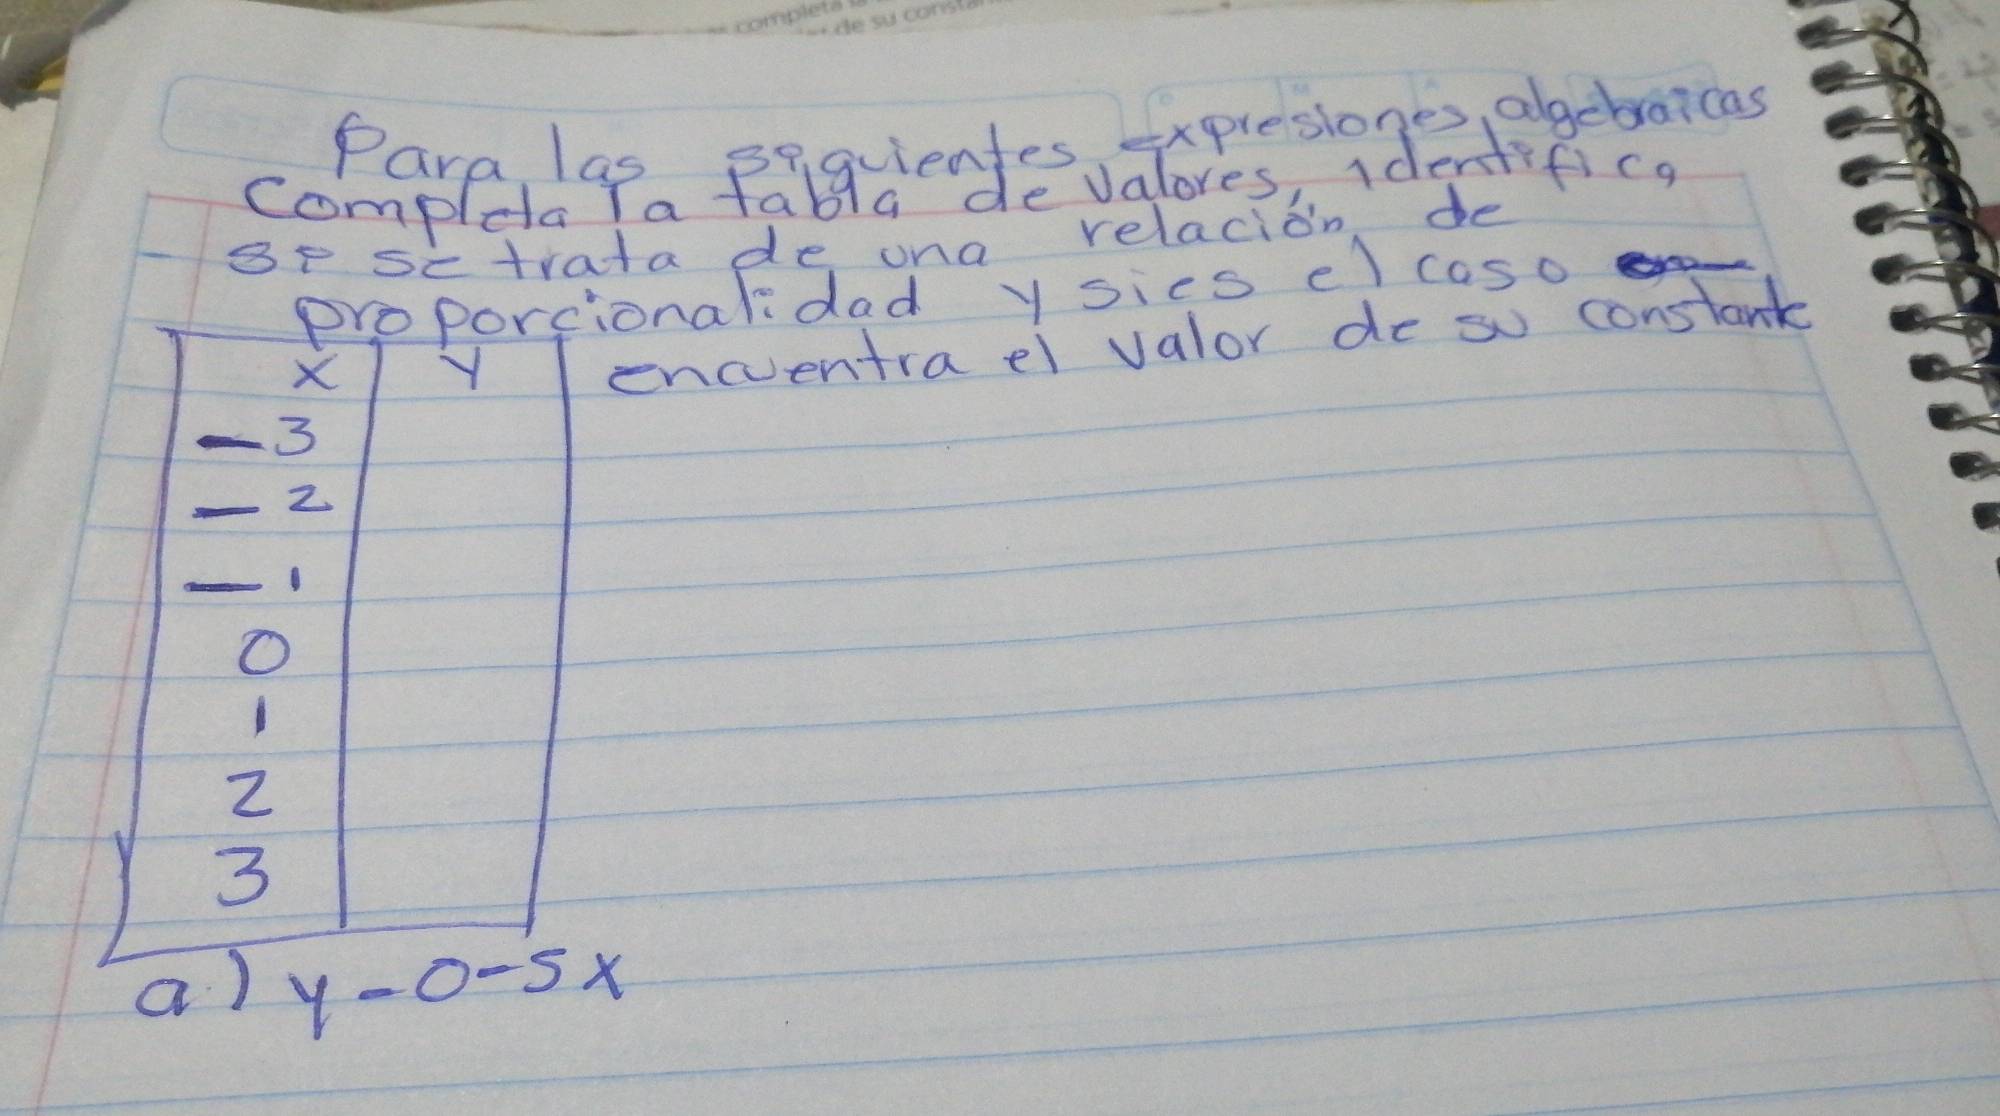 completa
de su
Para las siguientes expresiones algebraicas
Completa la tabla de valores, identifica
si se trata de una relación de
proporcionalidad y si es el caso
encuentra el valor de su constante
x y
-3
-2
-1
0
1
2
3
a.) y-0-5x